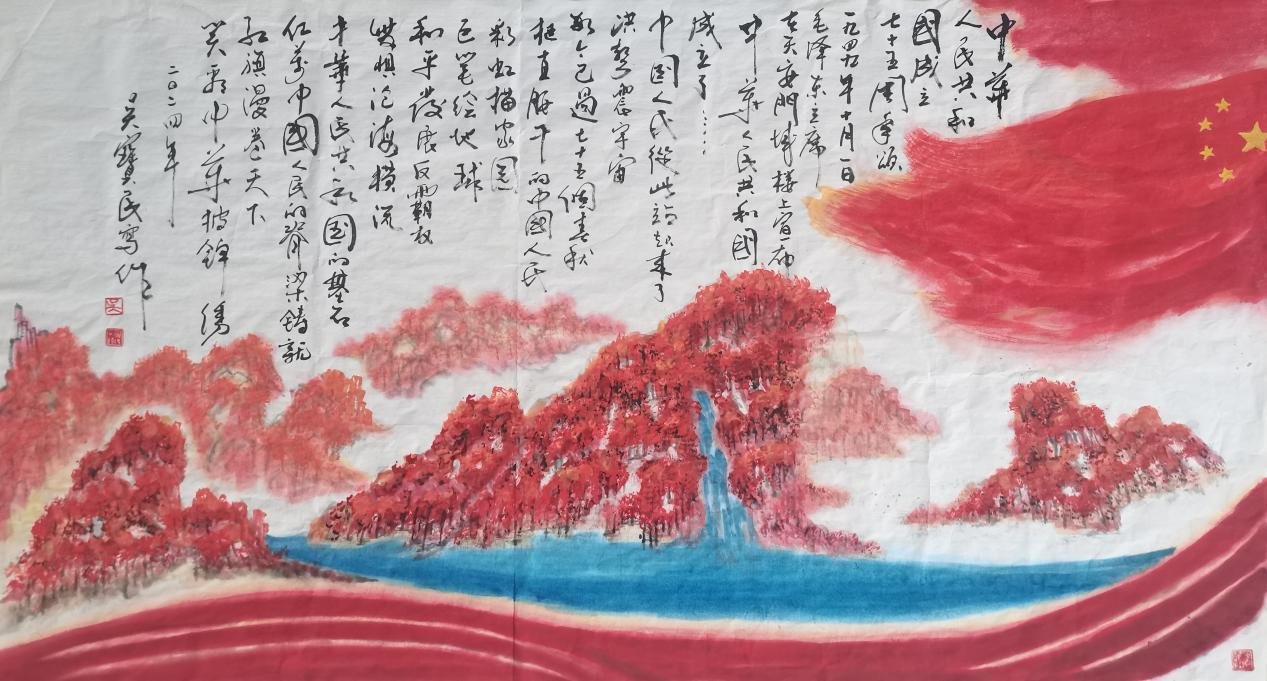 中華
人民共和
國成立
七十五周年頌
一九四九年十月一日
毛泽东主席
在天安門城楼上宣布
中華人民共和國
成立了……
中国人民從此站起来了
洪聲震宇宙
如今已過七十五個春秋
挺直腰干的中國人民
彩虹描家園
巨笔绘地球
和平發展反霸权
惧沧海横流
中華人民共和国的基石
亿萬中國人民的脊梁鑄就
红旗漫卷天下
笑看中華披錦绣
二〇二四年
吴寶民寫作
吴